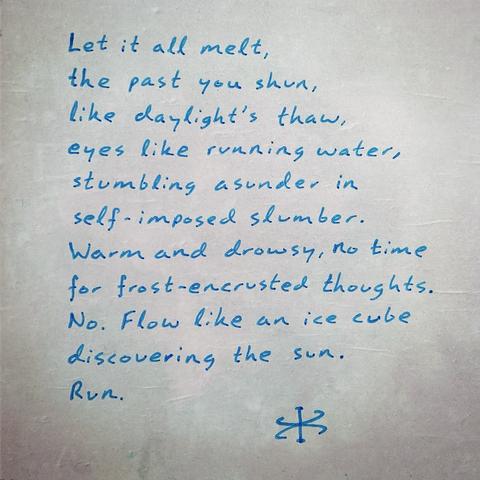 Let it all melt,
the past you shun,
like daylight's thaw,
eyes like running water,
stumbling asunder in
self-imposed slumber.
Warm and drowsy, no time
for frost-encrusted thoughts.
No. Flow like an ice cube
discovering the sun.
Run.